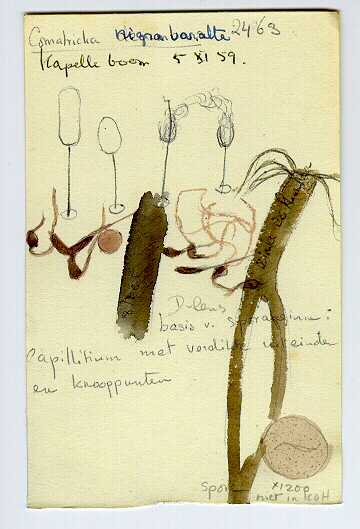 Comatricha nigra 2463
Kapelle boom 5 XI 59.
D-lens
basis v. sporangium:
Capillitium met verdikte uiteinden
en knooppunten
spore x1200
niet in KOH